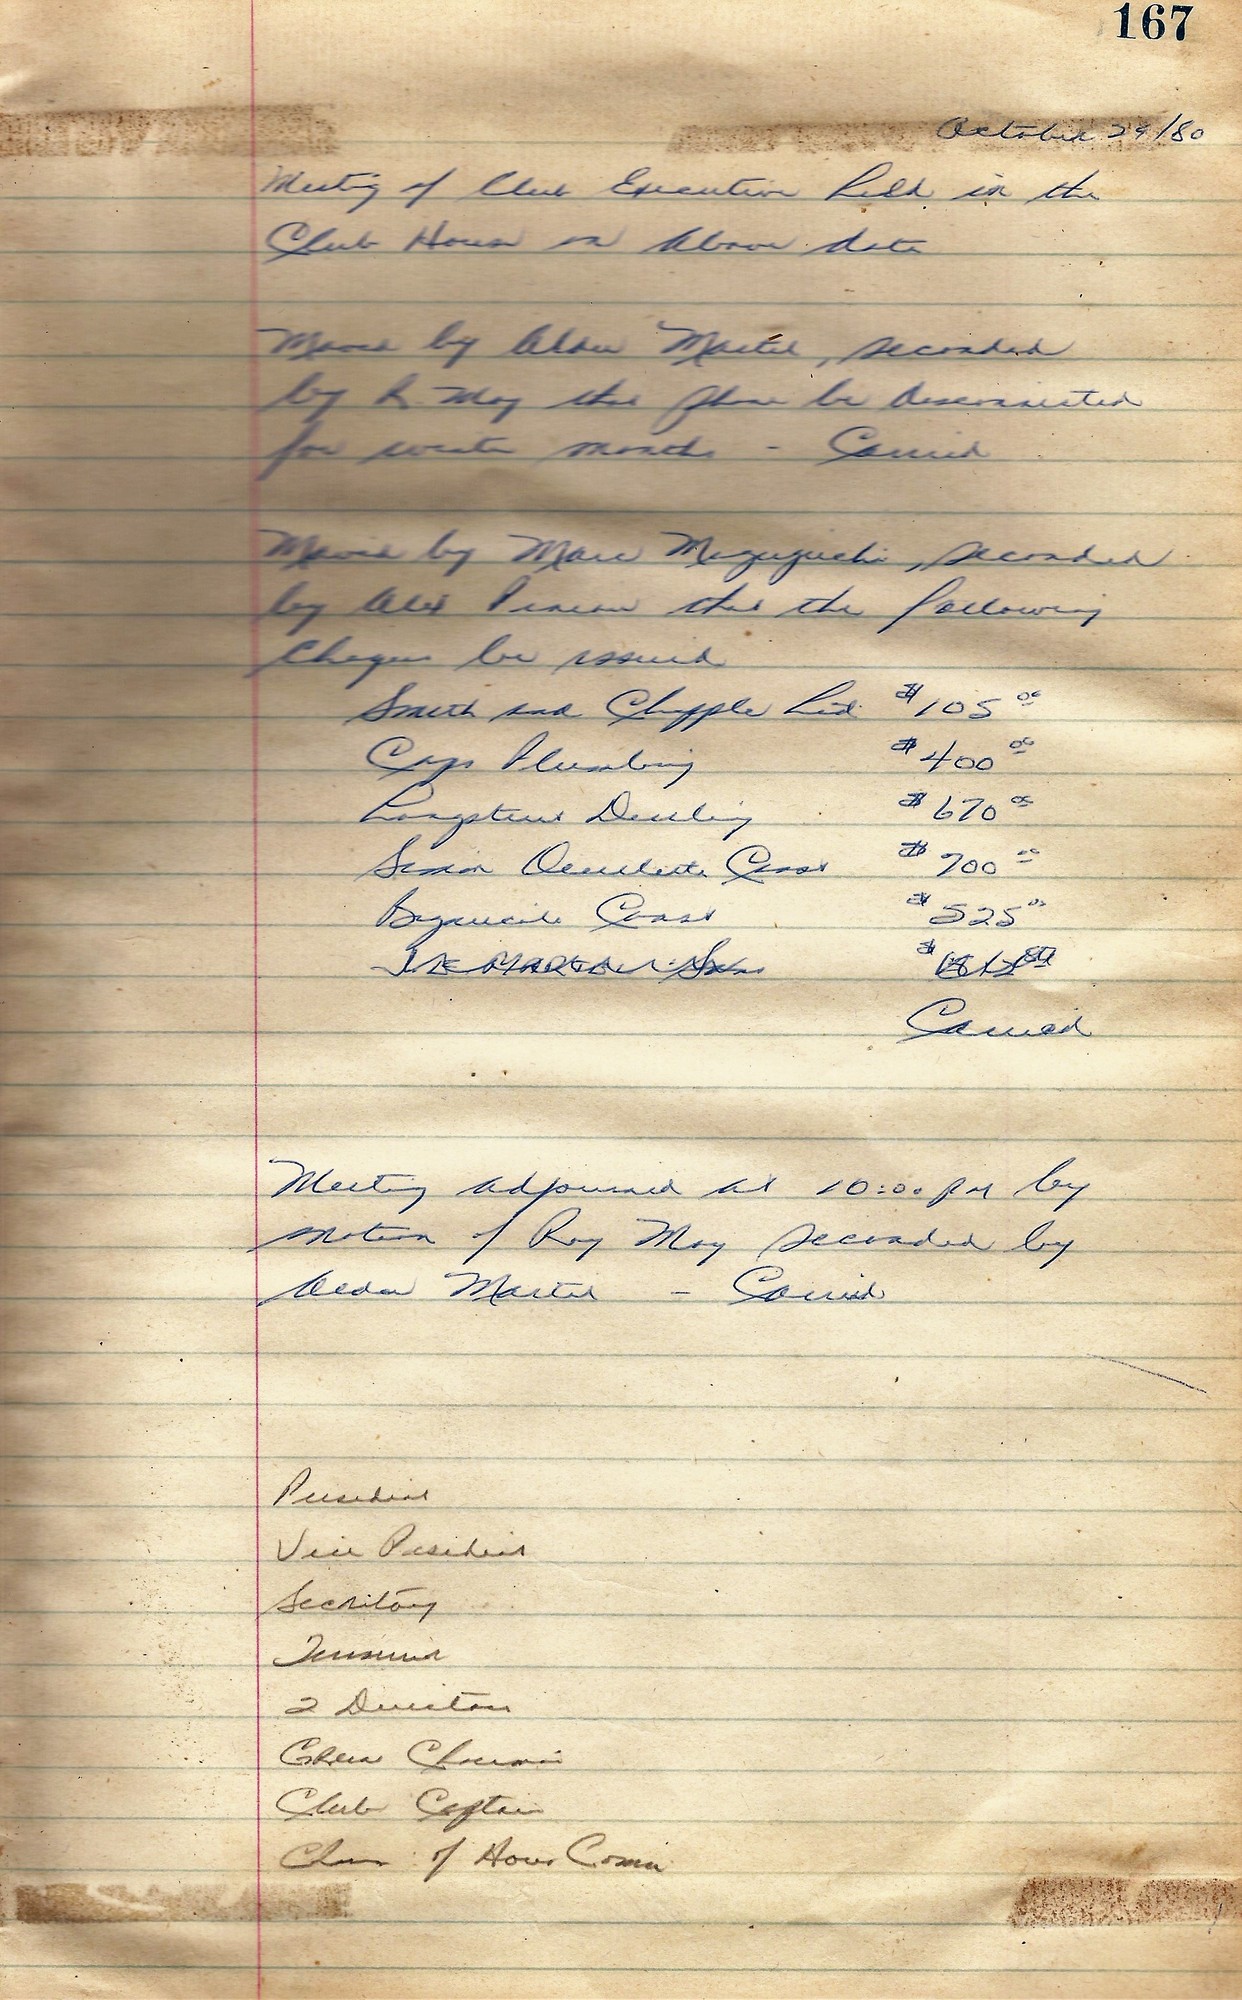 167
October 29/80
Meeting of Club Executive held in the
Club House on above date
Moved by Alder Martel, seconded
by R. May that phone be disconnected
for winter months - Carried
Moved by Marc, seconded
by Alex that the following
Cheques be issued
Smith and Chapple Ltd. $105.00
Caps Plumbing $400.00
$670.00
Simon Ouellette Const $700.00
Const $525.00
Carried
Meeting adjourned at 10:00 pm by
motion of Roy May seconded by
Alder Martel - Carried
President
Vice President
Secretary
Treasurer
2 Directors
Green Chairman
Club Captain
Chair of House Comm